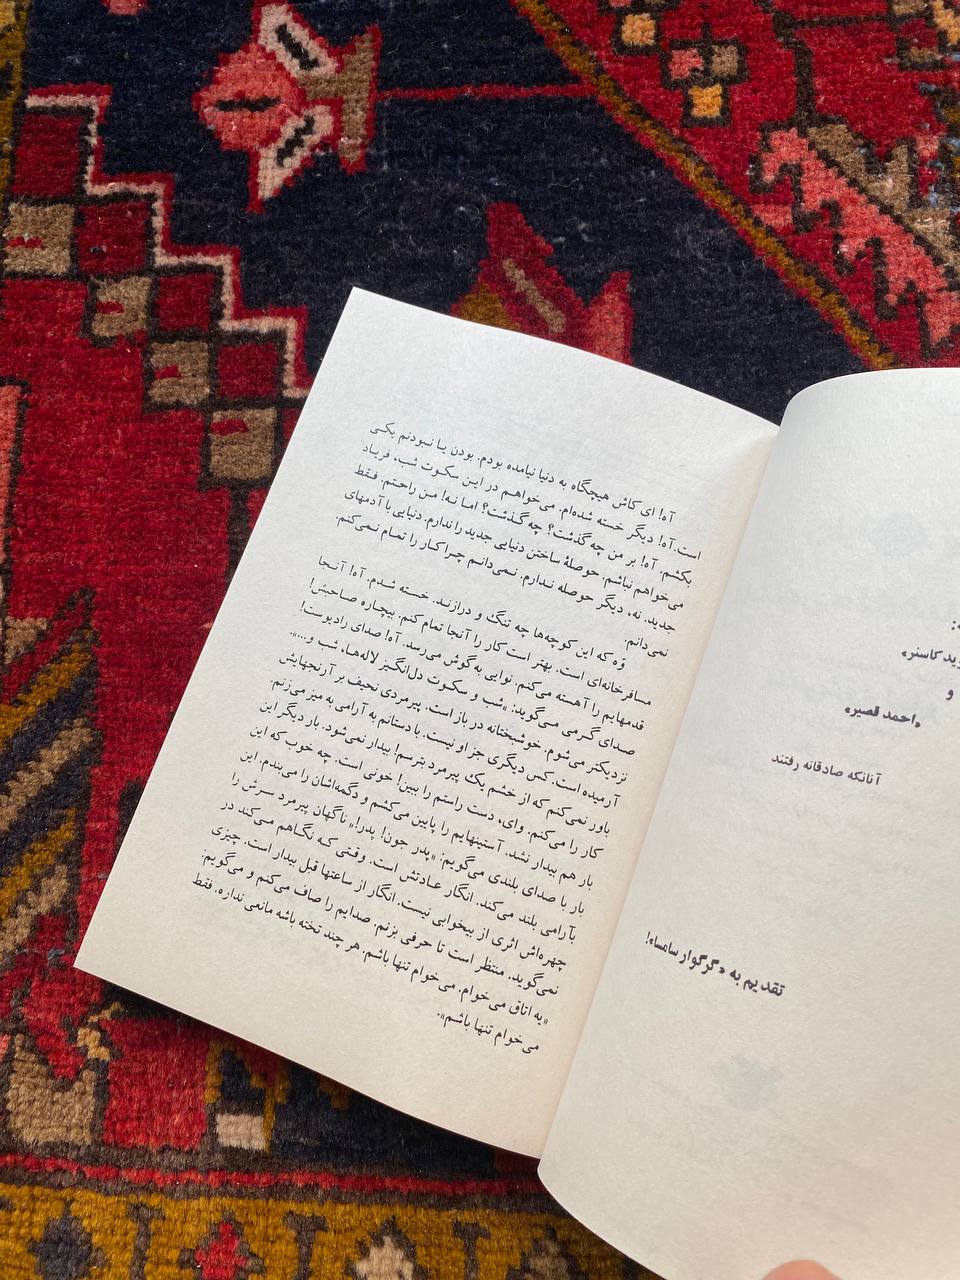 :
دید کاسنر»
و
«احمد قصیر»
آنانکه صادقانه رفتند
تقدیم به «گرگوار سامسا»!
آه! ای کاش هیچگاه به دنیا نیامده بودم. بودن یا نبودنم یکی
است. آه! دیگر خسته شده‌ام. می‌خواهم در این سکوت شب، فریاد
بکشم. آه! بر من چه گذشت؟ چه گذشت؟ اما نه! من راحتم. فقط
می‌خواهم نباشم. حوصلهٔ ساختن دنیایی جدید را ندارم. دنیایی با آدمهای
جدید. نه، دیگر حوصله ندارم. نمی‌دانم چرا کار را تمام نمی‌کنم.
نمی‌دانم.
وَه که این کوچه‌ها چه تنگ و درازند. خسته شدم. آه! آنجا
مسافرخانه‌ای است. بهتر است کار را آنجا تمام کنم. بیچاره صاحبش!
قدمهایم را آهسته می‌کنم. نوایی به گوش می‌رسد. آه! صدای رادیوست!
صدای گرمی می‌گوید: «شب و سکوت دل‌انگیز لاله‌ها، شب و...».
نزدیکتر می‌شوم. خوشبختانه در باز است. پیرمردی نحیف بر آرنجهایش
آرمیده است. کس دیگری جز او نیست. با دستانم به آرامی به میز می‌زنم.
باور نمی‌کنم که از خشم یک پیرمرد بترسم! بیدار نمی‌شود. بار دیگر این
کار را می‌کنم. وای، دست راستم را ببین! خونی است. چه خوب که این
بار هم بیدار نشد. آستینهایم را پایین می‌کشم و دگمه‌اشان را می‌بندم. این
بار با صدای بلندی می‌گویم: «پدر جون! پدر!» ناگهان پیرمرد سرش را
بآرامی بلند می‌کند. انگار عادتش است. وقتی که نگاهم می‌کند در
چهره‌اش اثری از بیخوابی نیست. انگار از ساعتها قبل بیدار است. چیزی
نمی‌گوید. منتظر است تا حرفی بزنم. صدایم را صاف می‌کنم و می‌گویم:
«یه اتاق می‌خوام. می‌خوام تنها باشم. هر چند تخته باشه مانعی نداره. فقط
می‌خوام تنها باشم».